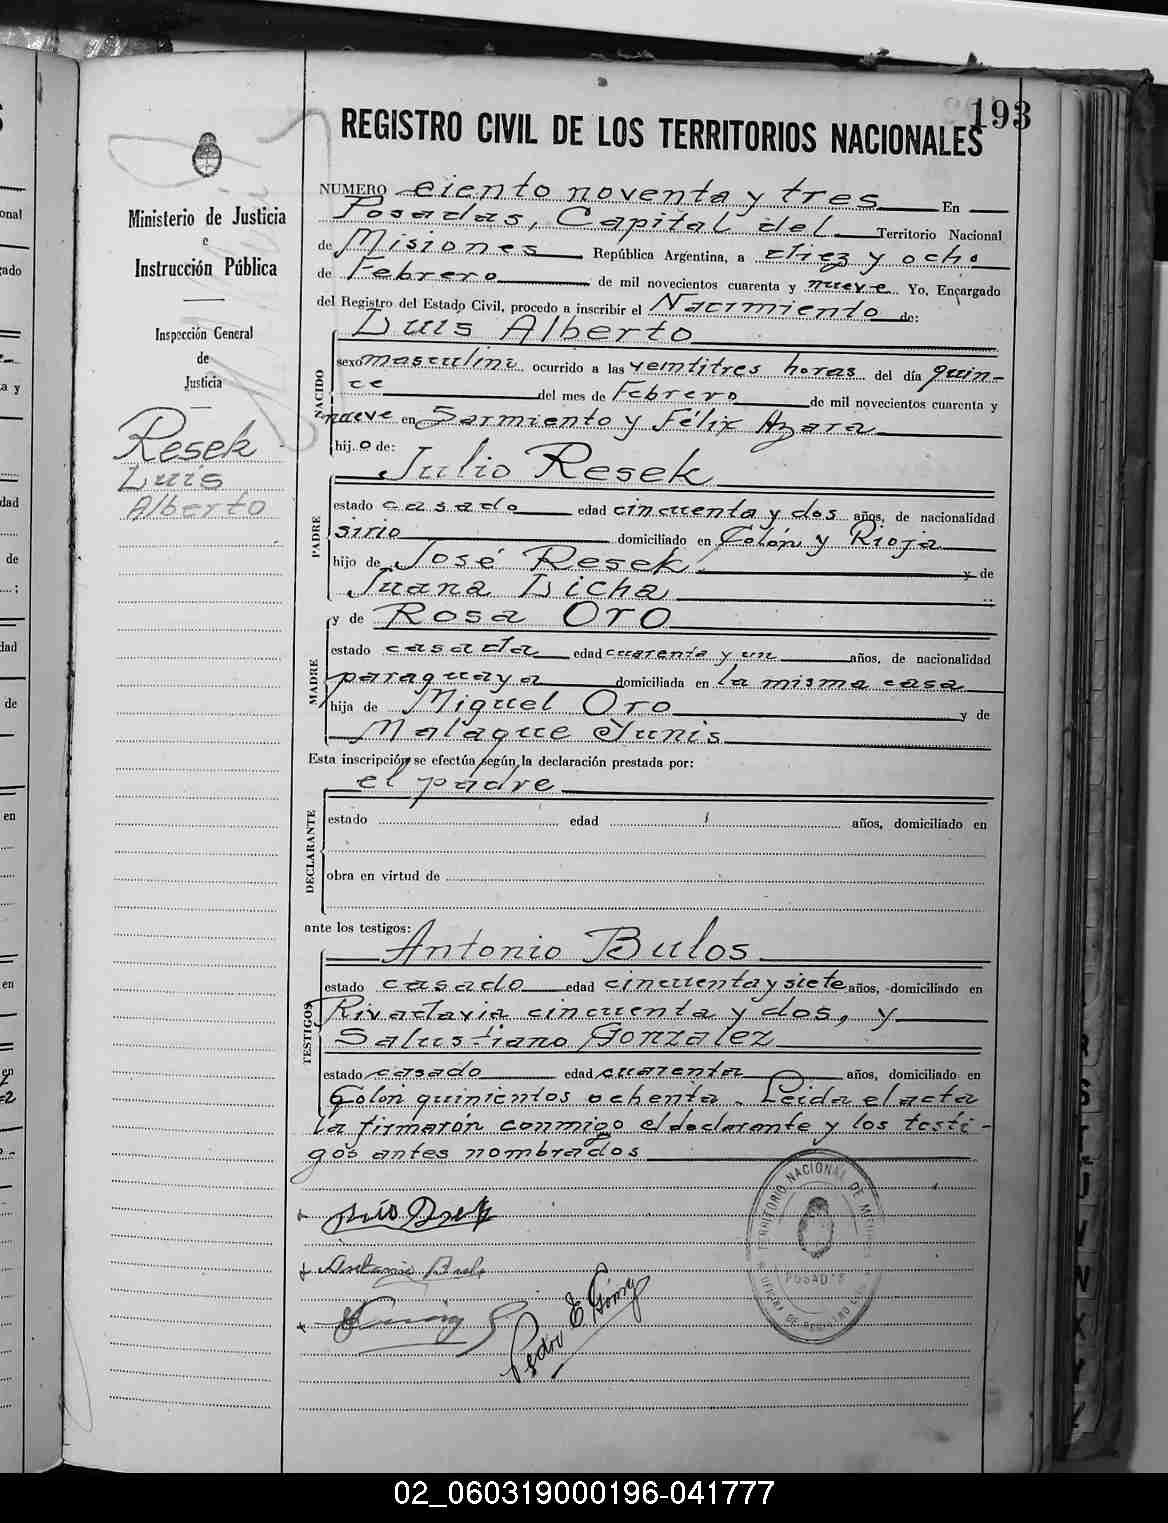 193
REGISTRO CIVIL DE LOS TERRITORIOS NACIONALES
Ministerio de Justicia
e
Instrucción Pública
Inspección General
de
Justicia
Resek
Luis
Alberto
NUMERO ciento noventa y tres En
Posadas, Capital del Territorio Nacional
de Misiones República Argentina, a diez y ocho
de Febrero de mil novecientos cuarenta y nueve Yo, Encargado
del Registro del Estado Civil, procedo a inscribir el Nacimiento de:
Luis Alberto
NACIDO
sexo masculino ocurrido a las veintitres horas del día quin-
ce del mes de Febrero de mil novecientos cuarenta y
nueve en Sarmiento y Félix Azara
hijo de:
Julio Resek
PADRE
estado casado edad cincuenta y dos años, de nacionalidad
sirio domiciliado en Colón y Rioja
hijo de José Resek y de
Juana Dicha
y de Rosa Oro
MADRE
estado casada edad cuarenta y un años, de nacionalidad
paraguaya domiciliada en la misma casa
hija de Miguel Oro y de
Malaque Yunis
Esta inscripción se efectúa según la declaración prestada por:
el padre
DECLARANTE
estado edad años, domiciliado en
obra en virtud de
ante los testigos:
Antonio Bulos
TESTIGOS
estado casado edad cincuenta y siete años, domiciliado en
Rivadavia cincuenta y dos, y
Salustiano Gonzalez
estado casado edad cuarenta años, domiciliado en
Colón quinientos ochenta. Leida el acta
la firmarón conmigo el declarante y los testi-
gos antes nombrados
Antonio Bulos
Pedro E Gómez
TERRITORIO NACIONAL DE MISIONES
POSADAS
OFICINA DE REGISTRO CIVIL
R
S
T
U
V
N
X
Y
Z
02_060319000196-041777